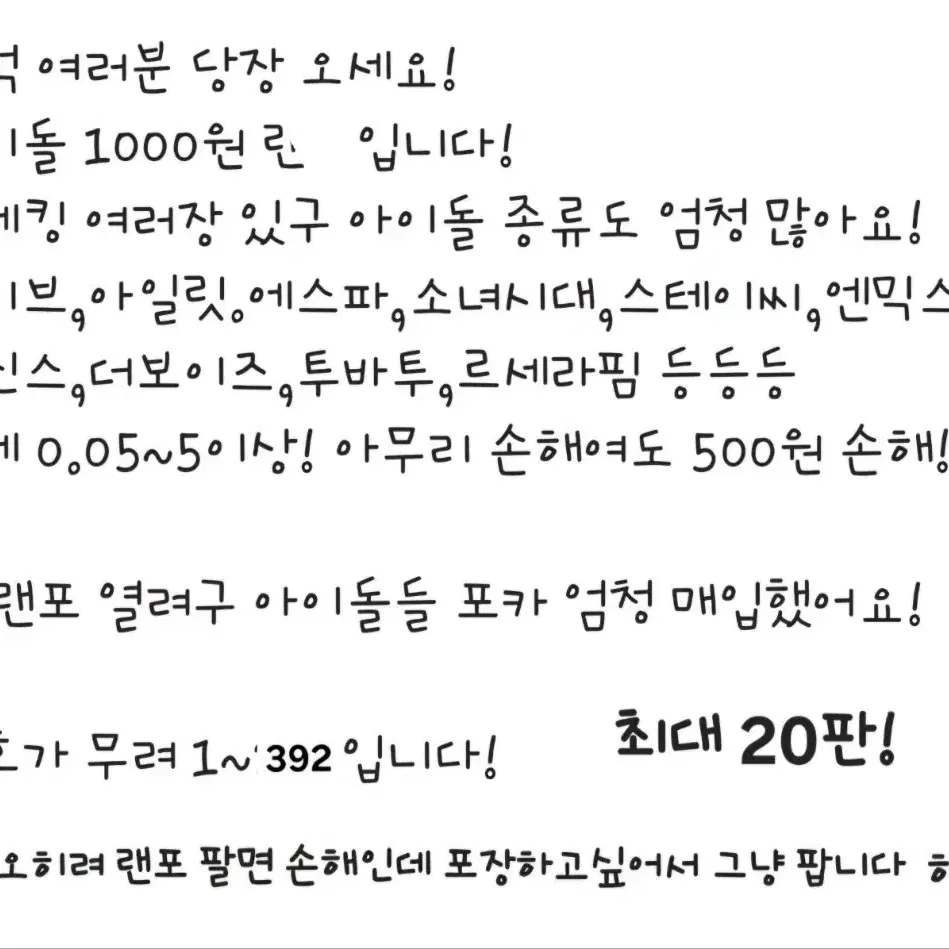 여러분 당장 오세요!
돌 1000원 입니다!
킹 여러장 있구 아이돌 종류도 엄청 많아요!
브,아일릿,에스파,소녀시대,스테이씨,엔믹스
스,더보이즈,투바투,르세라핌 등등등
0.05~5이상! 아무리 손해여도 500원 손해!
랜포 열려구 아이돌들 포카 엄청 매입했어요!
가 무려 1~392입니다!
최대 20판!
오히려 랜포 팔면 손해인데 포장하고싶어서 그냥 팝니다